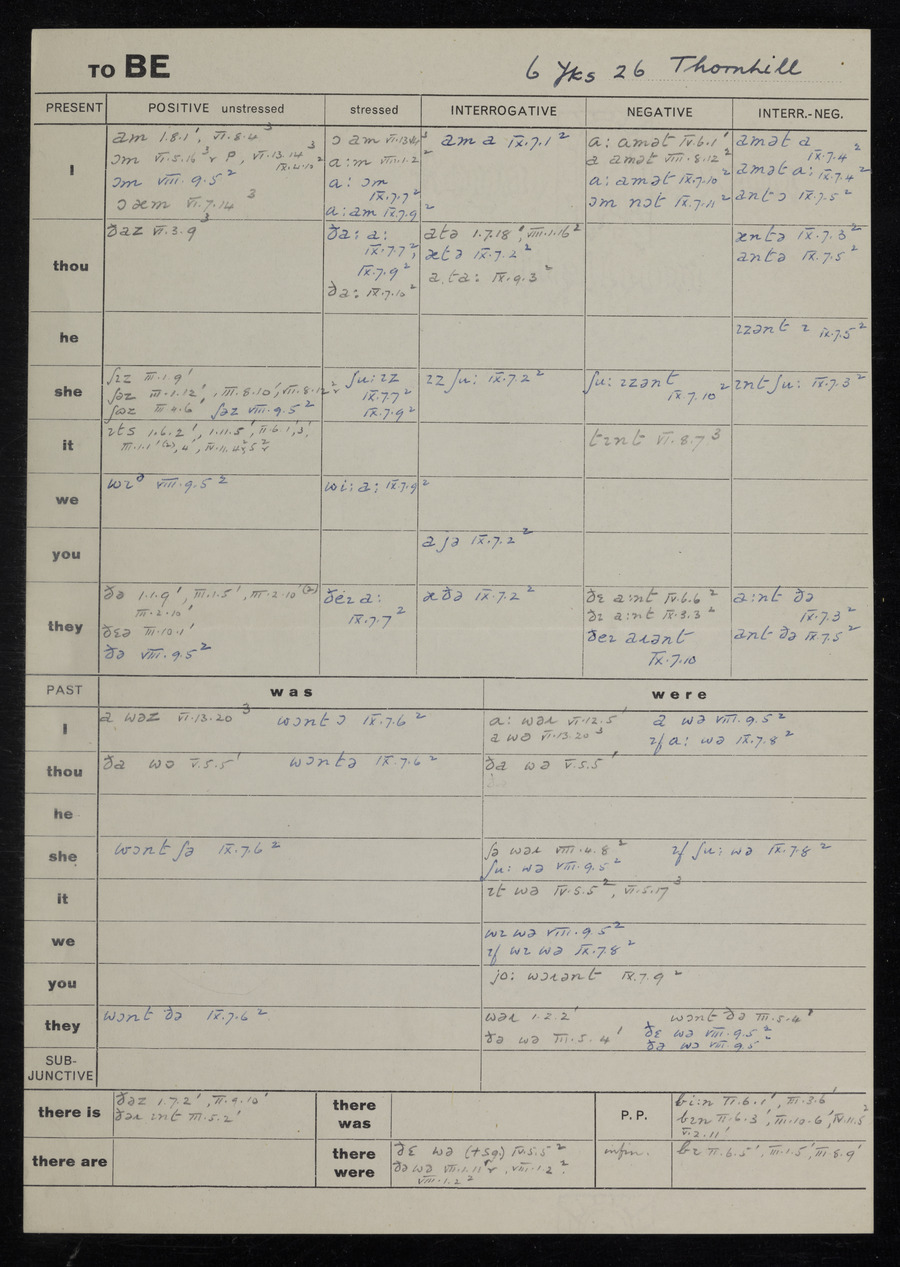 TO BE
6 Yks 26 Thornhill
PRESENT POSITIVE unstressed stressed INTERROGATIVE NEGATIVE INTERR.-NEG.
I
am I.8.1¹, VI.8.4³
ɔm VI.5.16³ r p, VI.13.14³
IX.4.10²
ɔm VIII.9.5²
ɔ æm VI.7.14³
a:m VIII.1.2²
a: ɔm
IX.7.7²
a:am IX.7.9²
am a IX.7.1²
a: amət IV.6.1¹
a amət VIII.8.12²
a: amət IX.7.10²
ɔm nɔt IX.7.11²
amət a
IX.7.4²
amət a: IX.7.4²
ant ɔ IX.7.5²
thou
ðaz VI.3.9³
ða: a:
IX.7.7²,
IX.7.9²
ða: IX.7.10²
atə I.7.18¹, VIII.1.16²
ætə IX.7.2²
a.ta: IX.9.3²
æntə IX.7.3²
antə IX.7.5²
he
ɪzənt ɪ IX.7.5²
she
ʃɪz III.1.9¹
ʃəz III.1.12¹, III.8.10¹, VII.8.12²
ʃəz III.4.6 ʃəz VIII.9.5²
ʃu: ɪz
IX.7.7²
IX.7.9²
ɪz ʃu: IX.7.2²
ʃu: ɪzənt
IX.7.10²
ɪnt ʃu: IX.7.3²
it
ɪts I.6.2¹, I.11.5¹, II.6.1¹,
tɪnt VI.8.7³
we
wɪᵊ VIII.9.5²
wi: a: IX.7.9²
you
a jə IX.7.2²
they
ðə I.1.9¹, III.1.5¹, III.2.10¹⁽²⁾
III.2.10¹
ðɛə III.10.1¹
ðə VIII.9.5²
ðeɪ a:
IX.7.7²
æðə IX.7.2²
ðɛ a:nt IV.6.6²
ðɪ a:nt IX.3.3²
ðeɪ aɹənt
IX.7.10
a:nt ðə
IX.7.3²
ant ðə IX.7.5²
PAST was were
I
a wəz VI.13.20³ wɔnt ɔ IX.7.6²
a: wəɹ VI.12.5¹ a wə VIII.9.5²
a wə VI.13.20³ ɪf a: wə IX.7.8²
thou
ða wə V.5.5¹ wɔntə IX.7.6²
ða wə V.5.5¹
he
she
wɔnt ʃə IX.7.6²
ʃə wəɹ VIII.4.8² ɪf ʃu: wə IX.7.8²
ʃu: wə VIII.9.5²
it
ɪt wə IV.5.5², VI.5.17³
we
wɪ wə VIII.9.5²
ɪf wɪ wə IX.7.8²
you
jo: wɔɹənt IX.7.9²
they
wɔnt ðə IX.7.6²
wəɹ I.2.2¹ wɔnt ðə III.5.4¹
ðə wə III.5.4¹ ðɛ wə VIII.9.5²
ðə wə VIII.9.5²
SUB-
JUNCTIVE
there is
ðəz I.7.2¹, II.9.10¹
ðəɹ ɪnt III.5.2¹
there
was
P.P.
bi:n II.6.1¹, III.3.6¹
bɪn II.6.3¹, III.10.6¹, IV.11.5²
V.2.11¹
there are
there
were
ðɛ wə (+sg.) IV.5.5²
ðə wə VII.1.11² r, VII.1.2²
VIII.1.2²
infin.
bɪ II.6.5¹, III.1.5¹, III.8.9¹